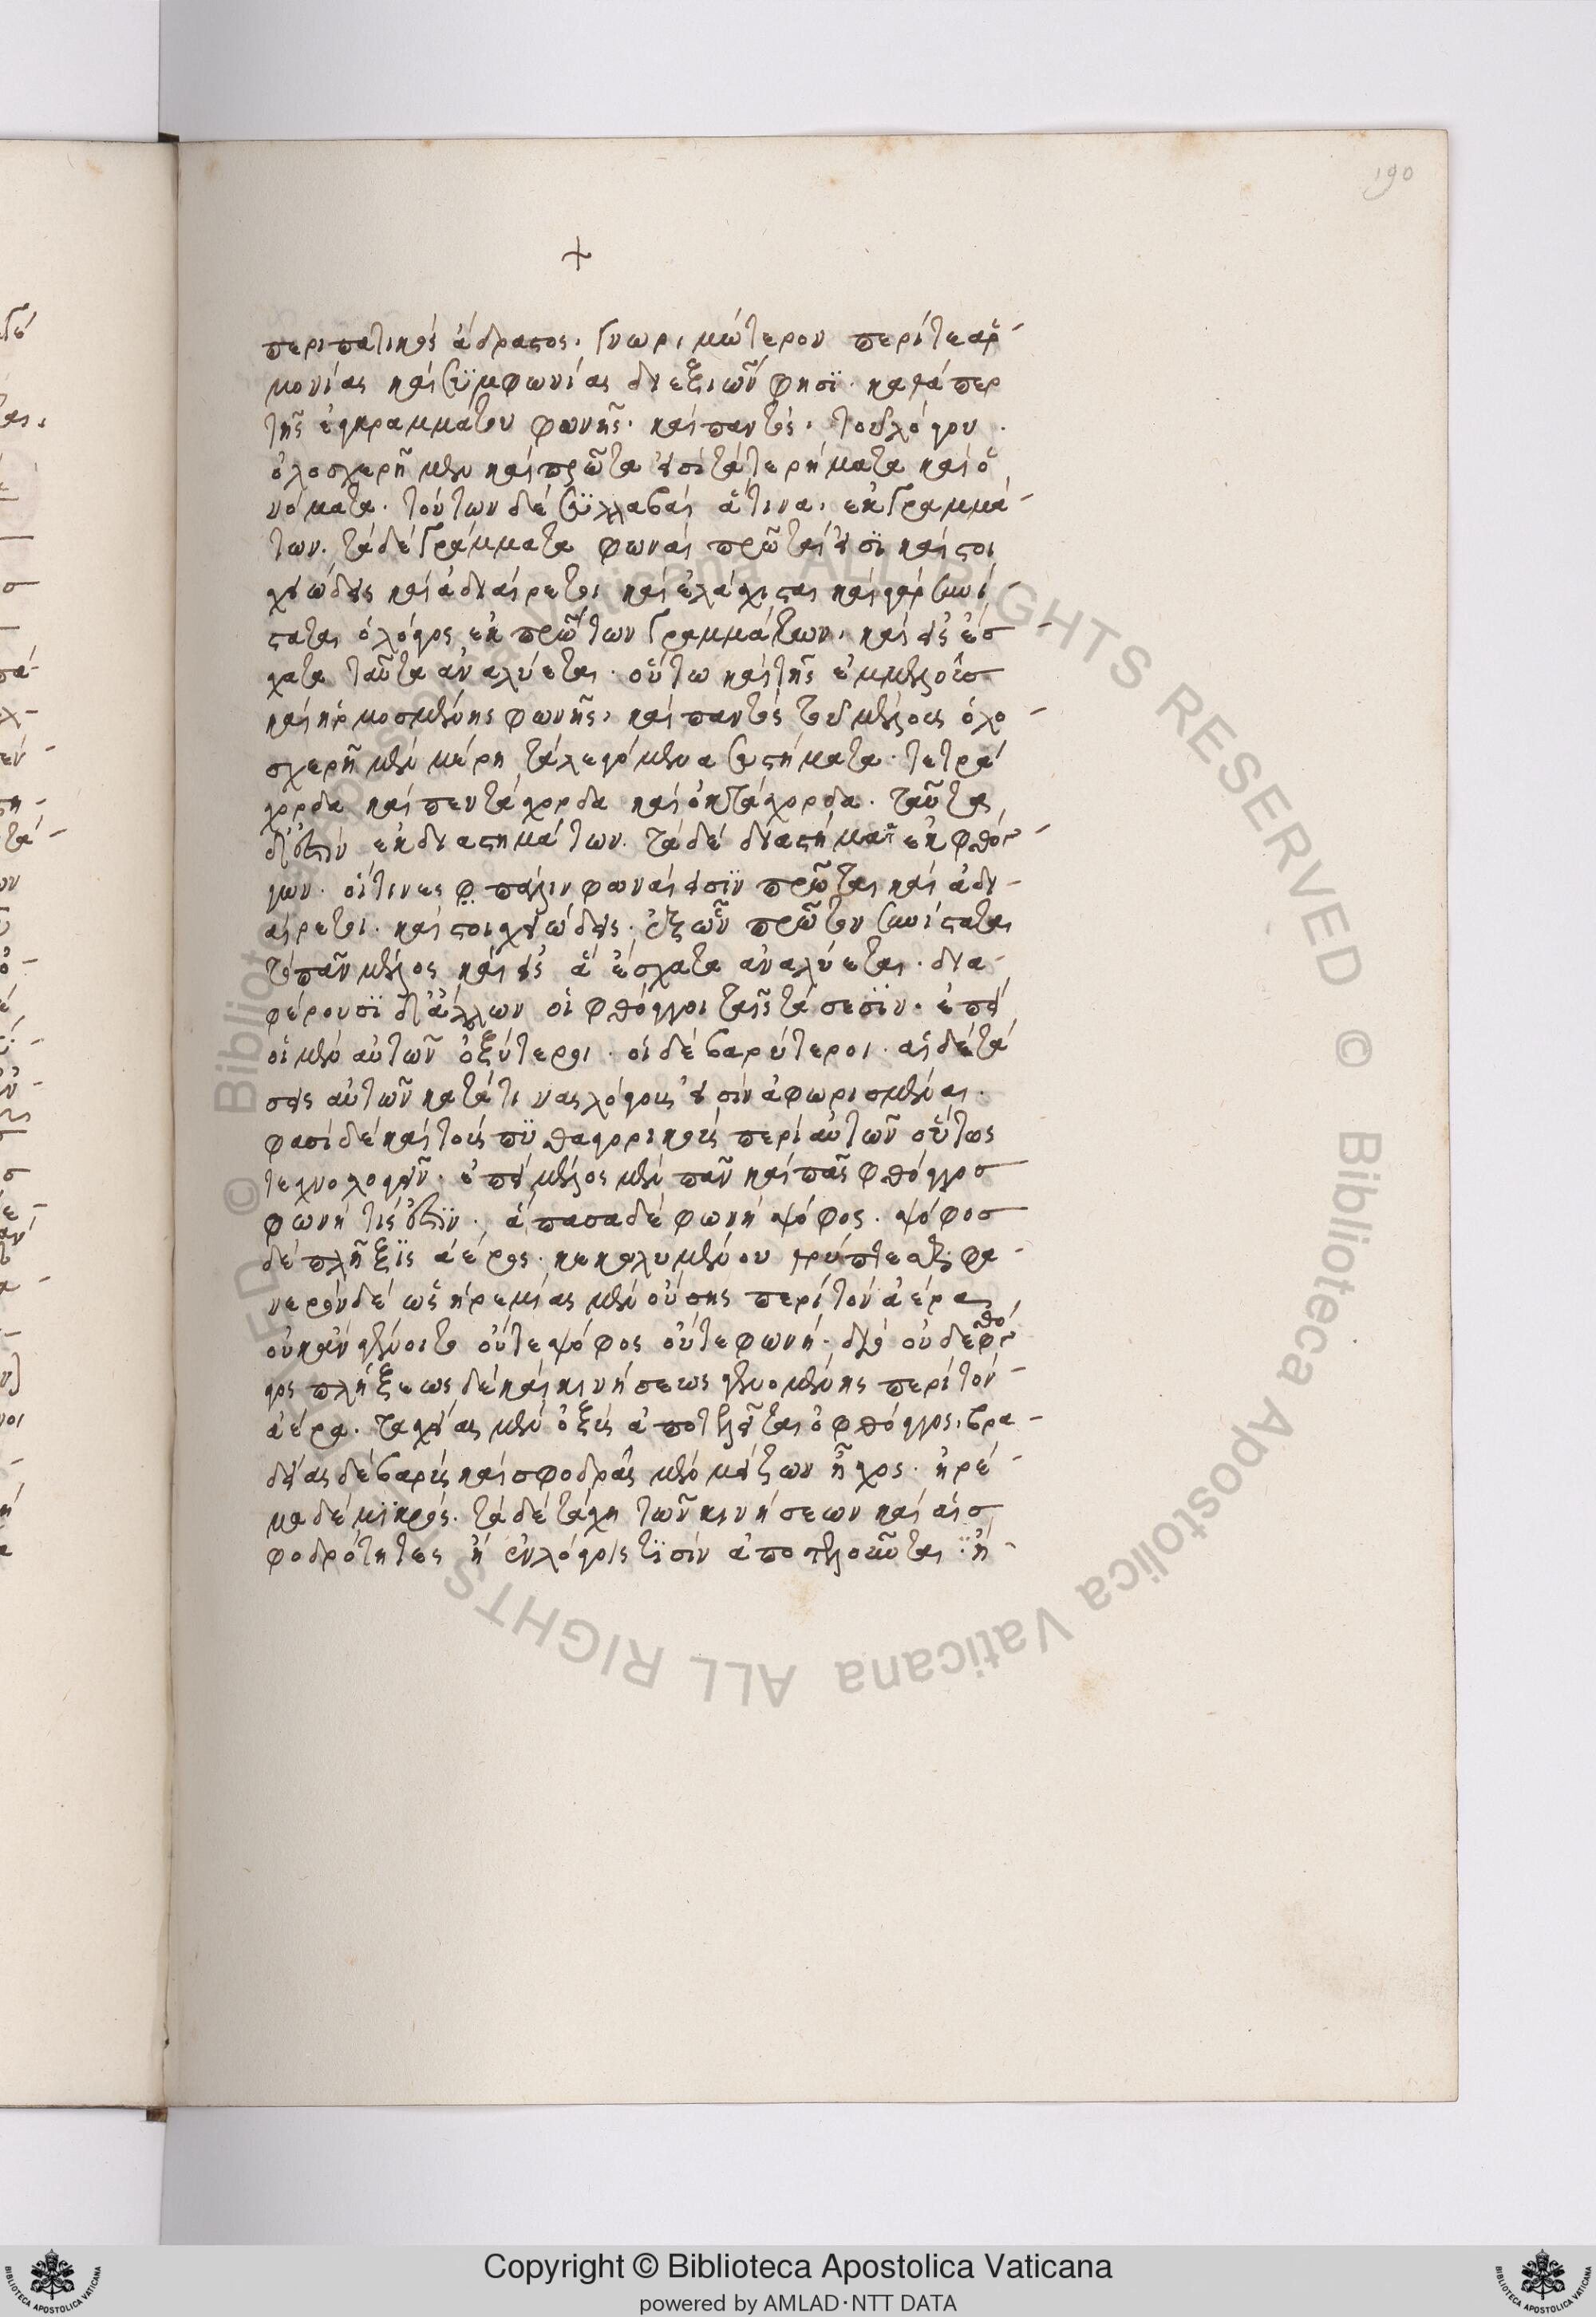 190
περιπατικὸς ἄδραστος. γνωριμώτερον περί τε ἁρ-
μονίας καὶ συμφωνίας διεξιὼν φησϊ. καθάπερ
τῆς ἐγγραμμάτου φωνῆς. καὶ παντὸς τοῦ λόγου.
ὁλοσχερῆ μὲν καὶ πρῶτα εἰσὶ τά τε ῥήματα καὶ ὀ
νόματα. τούτων δὲ συλλαβαὶ ἅτινα. ἐκ γραμμά-
των. τὰ δὲ γράμματα φωναὶ πρῶταί εἰσϊ καὶ στοι
χειώδεις καὶ ἀδιαίρετοι καὶ ἐλάχισται καὶ γὰρ συνί-
σταται ὁ λόγος ἐκ πρώτων γραμμάτων. καὶ εἰς ἔσ-
χατα ταῦτα ἀναλύεται. οὕτω καὶ τῆς ἐμμελοῦσ
καὶ ἡρμοσμένης φωνῆς. καὶ παντὸς τοῦ μέλους ὁλο-
σχερῆ μὲν μέρη τὰ λεγόμενα συστήματα. τετρά
χορδα καὶ πεντάχορδα καὶ ὀκτάχορδα. ταῦτα
δ' ἐστὶν ἐκ διαστημάτων. τὰ δὲ διαστήματα ἐκ φθόγ-
γων. οἵτινες φ πάλιν φωναί εἰσϊν πρῶται καὶ ἀδι-
αίρετοι. καὶ στοιχειώδεις. ἐξ ὧν πρῶτον συνίσταται
τὸ πᾶν μέλος καὶ εἰς ἃ ἔσχατα ἀναλύεται. δια-
φέρουσϊ δ' ἀλλήλων οἱ φθόγγοι ταῖς τάσεσϊν. ἐπεὶ
οἱ μὲν αὐτῶν ὀξύτεροι. οἱ δὲ βαρύτεροι. αἱ δὲ τά
σεις αὐτῶν κατά τινας λόγους εἰσὶν ἀφωρισμέναι.
φασὶ δὲ καὶ τοὺς πϋθαγορικοὺς περὶ αὐτῶν οὕτως
τεχνολογεῖν. ἐπεὶ μέλος μὲν πᾶν καὶ πᾶς φθόγγοσ
φωνή τίς ἐστϊν. ἅπασα δὲ φωνὴ ψόφος. ψόφοσ
δὲ πλῆξϊς ἀέρος. κεκαλυμένου θρύπτεσθαι φα-
νερὸν δὲ ὡς ἠρεμίας μὲν οὔσης περὶ τὸν ἀέρα
οὐκ ἂν γένοιτο οὔτε ψόφος οὔτε φωνή. διὸ οὐδὲ φθόγ-
γος πλήξεως δὲ καὶ κινήσεως γενομένης περὶ τὸν-
ἀέρα. ταχείας μὲν ὀξὺς ἀποτελεῖται ὁ φθόγγος. βρα-
δείας δὲ βαρὺς καὶ σφοδρᾶς μὲν μείζων ἦχος. ἠρέ-
μα δὲ μϊκρός. τὰ δὲ τάχη τῶν κινήσεων καὶ αἱ σ
φοδρότητες ἢ ἐν λόγοις τϊσὶν ἀποτελοῦνται ἢ-
Copyright © Biblioteca Apostolica Vaticana
powered by AMLAD·NTT DATA